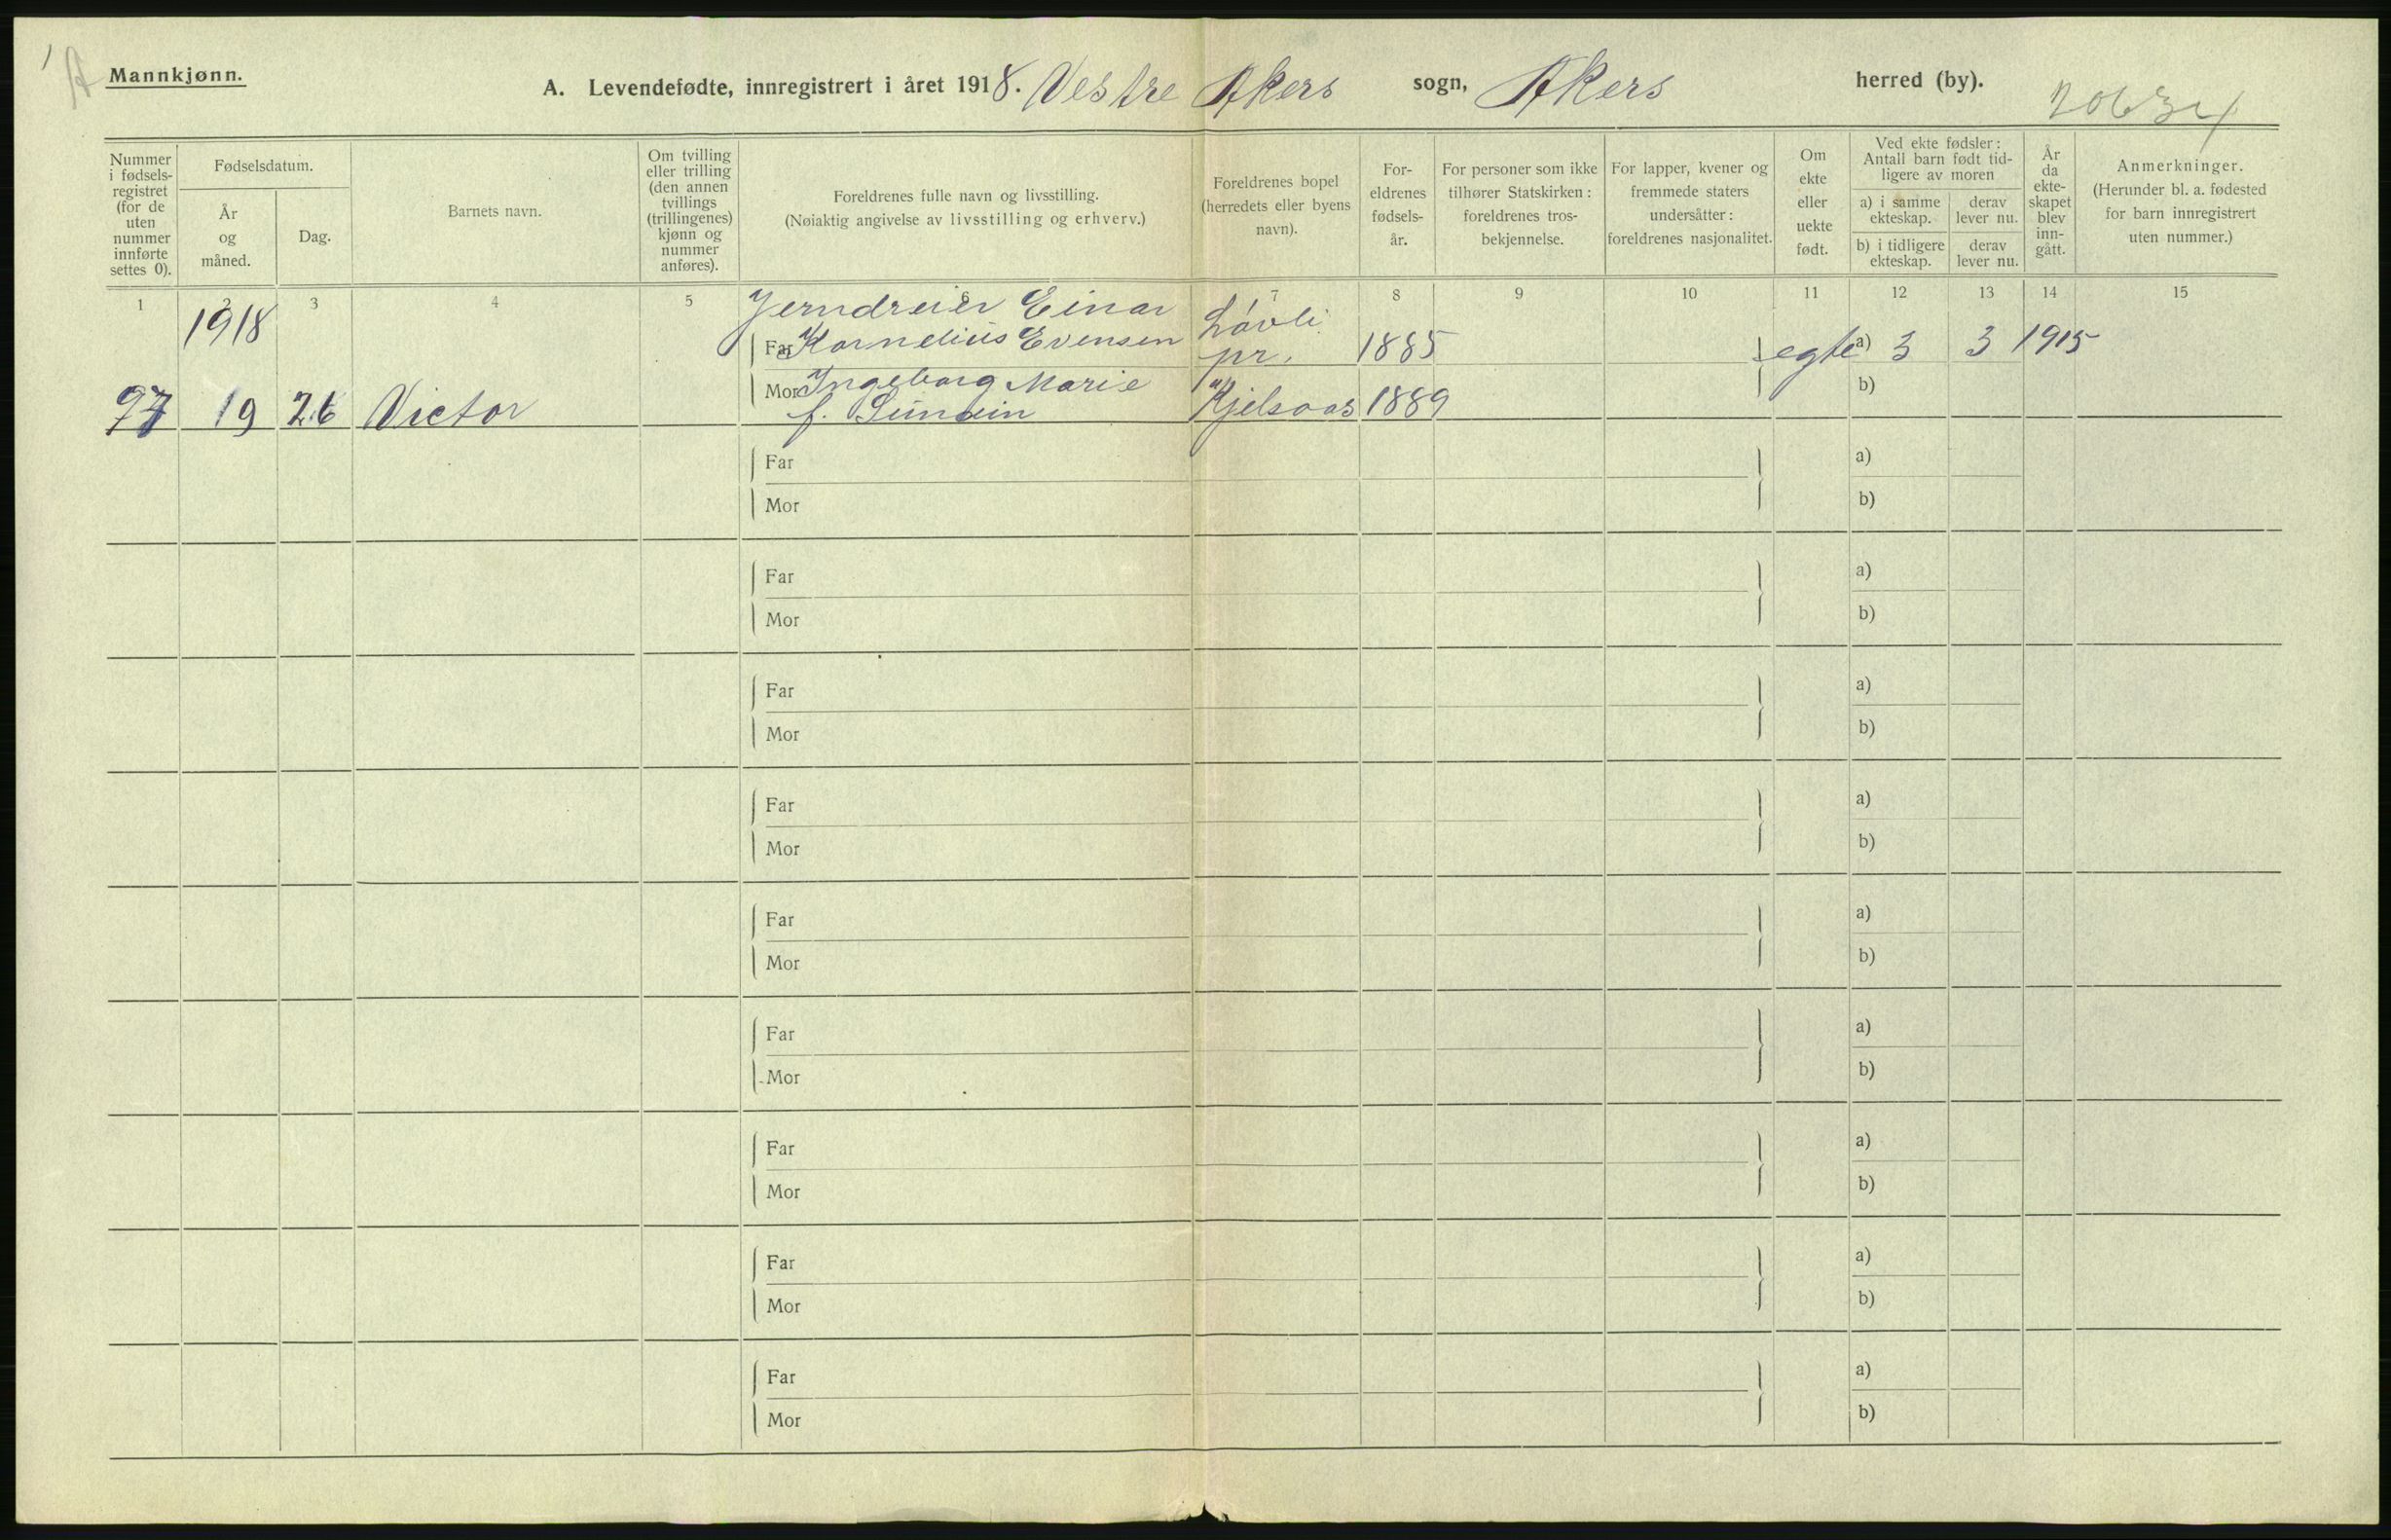 Mannkjønn.
A. Levendefødte, innregistrert i året 1918. Vestre Akers sogn, Akers herred (by).
Nummer i fødsels-registret (for de uten nummer innførte settes 0).
Fødselsdatum.
År og måned.
Dag.
Barnets navn.
Om tvilling eller trilling (den annen tvillings (trillingenes) kjønn og nummer anføres).
Foreldrenes fulle navn og livsstilling.
(Nøiaktig angivelse av livsstilling og erhverv.)
Foreldrenes bopel (herredets eller byens navn).
For-eldrenes fødsels-år.
For personer som ikke tilhører Statskirken: foreldrenes tros-bekjennelse.
For lapper, kvener og fremmede staters undersåtter: foreldrenes nasjonalitet.
Om ekte eller uekte født.
Ved ekte fødsler: Antall barn født tid-ligere av moren
a) i samme ekteskap.
derav lever nu.
b) i tidligere ekteskap.
derav lever nu.
År da ekte-skapet blev inn-gått.
Anmerkninger.
(Herunder bl. a. fødested for barn innregistrert uten nummer.)
1 2 3 4 5 6 7 8 9 10 11 12 13 14 15
1918 Jerndreier Einar Løvli
Far Kornelius Evensen pr. 1885 egte a) 3 3 1915
Mor Ingeborg Marie b)
97 19 26 Victor f. Kjelsaas 1889
Far a)
Mor b)
Far a)
Mor b)
Far a)
Mor b)
Far a)
Mor b)
Far a)
Mor b)
Far a)
Mor b)
Far a)
Mor b)
Far a)
Mor b)
Far a)
Mor b)